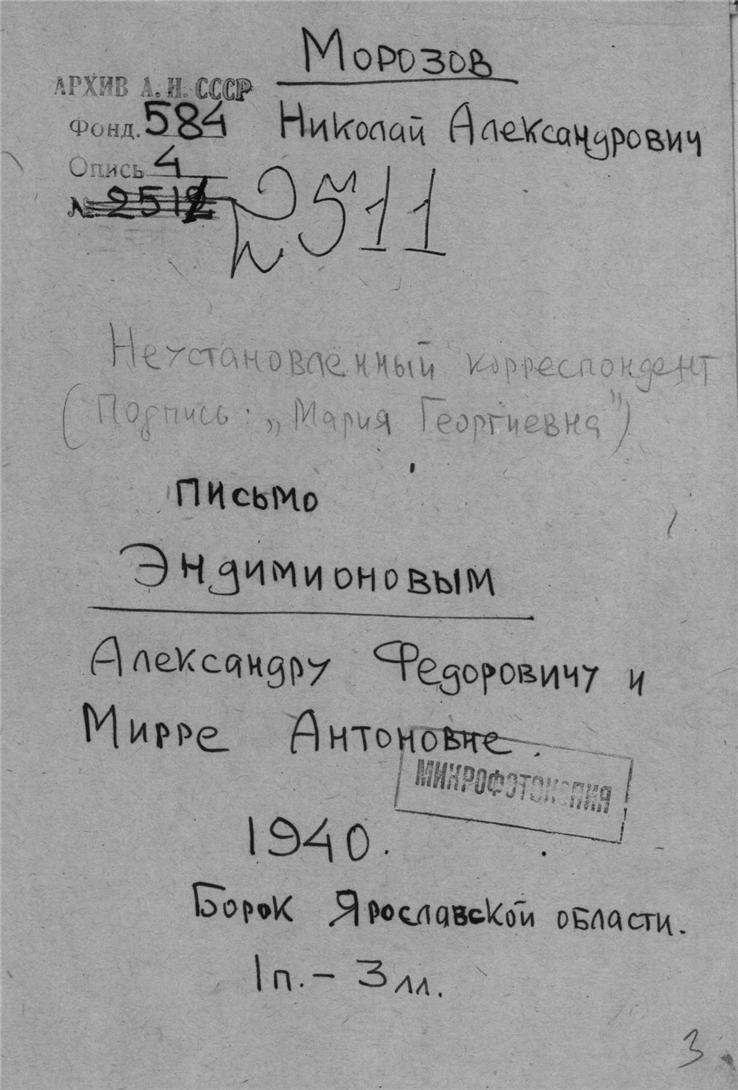 Морозов
АРХИВ А. Н. СССР
Фонд. 584
Николай Александрович
Опись 4
№ 2512
2511
Неустановленный корреспондент
(Подпись: „Мария Георгиевна")
письмо
Эндимионовым
Александру Федоровичу и
Мирре Антоновне.
МИКРОФОТОКОПИЯ
1940.
Борок Ярославской области.
1 п. - 3 лл.
3